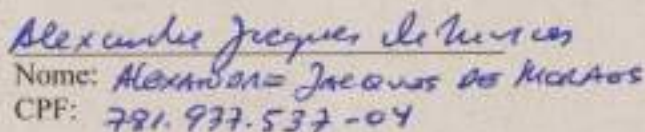 Alexandre Jacques de Moraes
Nome: ALEXANDRE JACQUES DE MORAES
CPF: 781.937.537-04